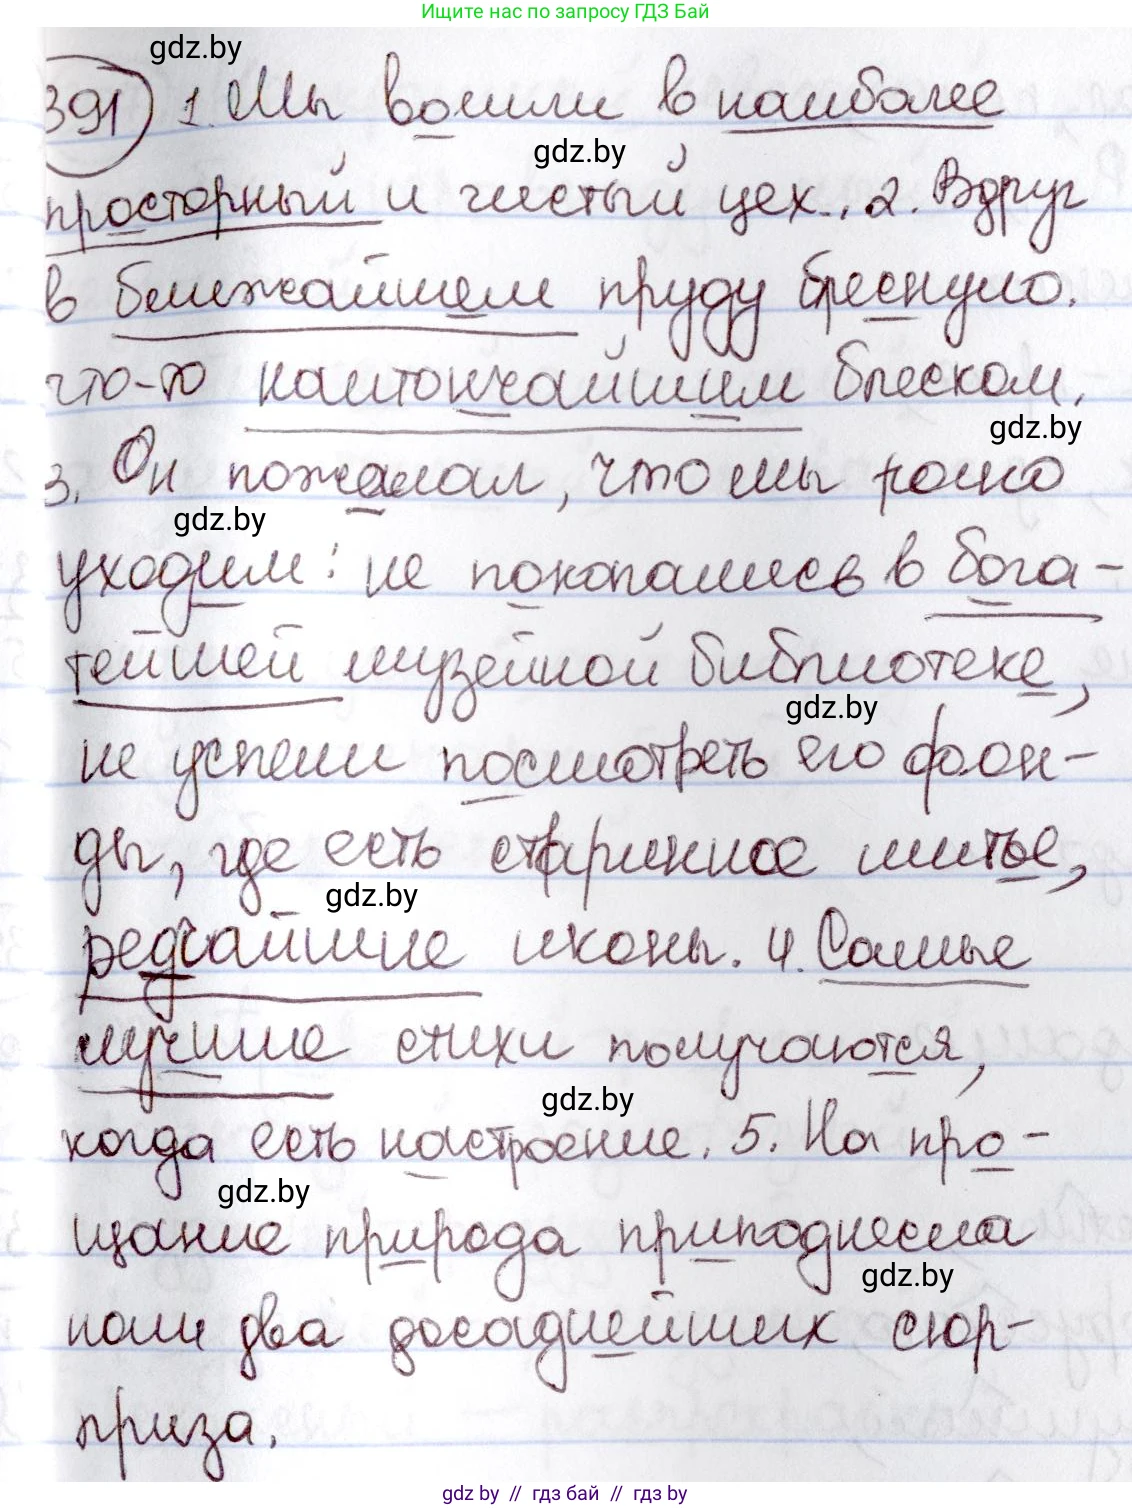 Ищите нас по запросу ГДЗ Бай
gdz.by
391) 1. Мы вошли в наиболее
gdz.by
просторный и чистый цех. 2. Вдруг
в ближайшем пруду блеснуло
что-то наитончайшим блеском.
gdz.by
3. Он пожалел, что мы рано
gdz.by
уходим: не покопались в бога-
тейшей музейной библиотеке,
gdz.by
не успели посмотреть его фон-
ды, где есть старинное литье,
gdz.by
редчайшие иконы. 4. Самые
лучшие стихи получаются,
gdz.by
когда есть настроение. 5. На про-
gdz.by
щание природа приподнесла
gdz.by
нам два досаднейших сюр-
приза.
gdz.by // гдз бай // gdz.by